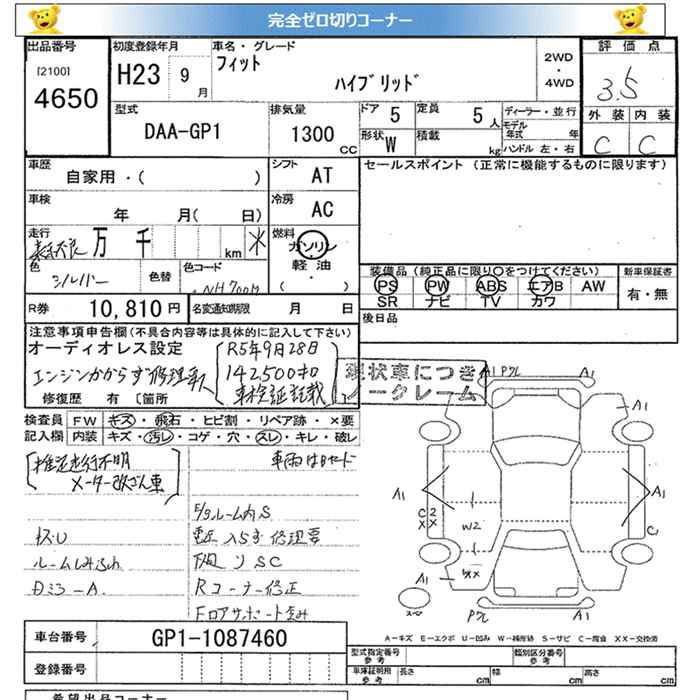 完全ゼロ切りコーナー
出品番号
[2100]
4650
初度登録年月
H23 9月
車名・グレード
フィット
ハイブリッド
2WD
・
4WD
評価点
3.5
外装 内装
C C
型式
DAA-GP1
排気量
1300
CC
ドア 5
定員 5人
形状 W
積載 kg
ディーラー・並行
モデル年式 年
ハンドル 左・右
車歴
自家用・( )
シフト AT
セールスポイント (正常に機能するものに限ります)
車検
年 月( 日)
冷房 AC
走行
万 千 km
燃料
ガソリン
軽油
・( )
色
シルバー
色替
色コード
NH700M
装備品 (純正品に限り○をつけてください)
PS PW ABS エアB AW
SR ナビ TV カワ
新車保証書
有・無
R券 10,810円
名変通知期限 月 日
後日品
注意事項申告欄(不具合内容等は具体的に記入して下さい)
オーディオレス設定
R5年9月28日
142500キロ
車検証記載
エンジンかからず修理
修復歴 有 [箇所
現状車につき
ノークレーム
検査員 FW キズ・飛石・ヒビ割・リペア跡・×要
記入欄 内装 キズ・汚レ・コゲ・穴・スレ・キレ・破レ
推定走行不明
メーター改ざん車
ルーム内S
下廻りSC
Rコーナー修正
Fロアサポート歪み
ルームしみ
DミラーA
A1
Pクレ
A1
A1
C2
XX
W2
A1
C1
A1
XX
Pクレ
A1
A-キズ E-エクボ U-凹み W-補修跡 S-サビ C-腐食 XX-交換済
車台番号 GP1-1087460
登録番号
型式指定番号
参考
類別区分番号
参考
車庫証明用
参考
長さ cm
幅 cm
高さ cm
希望出品コーナー